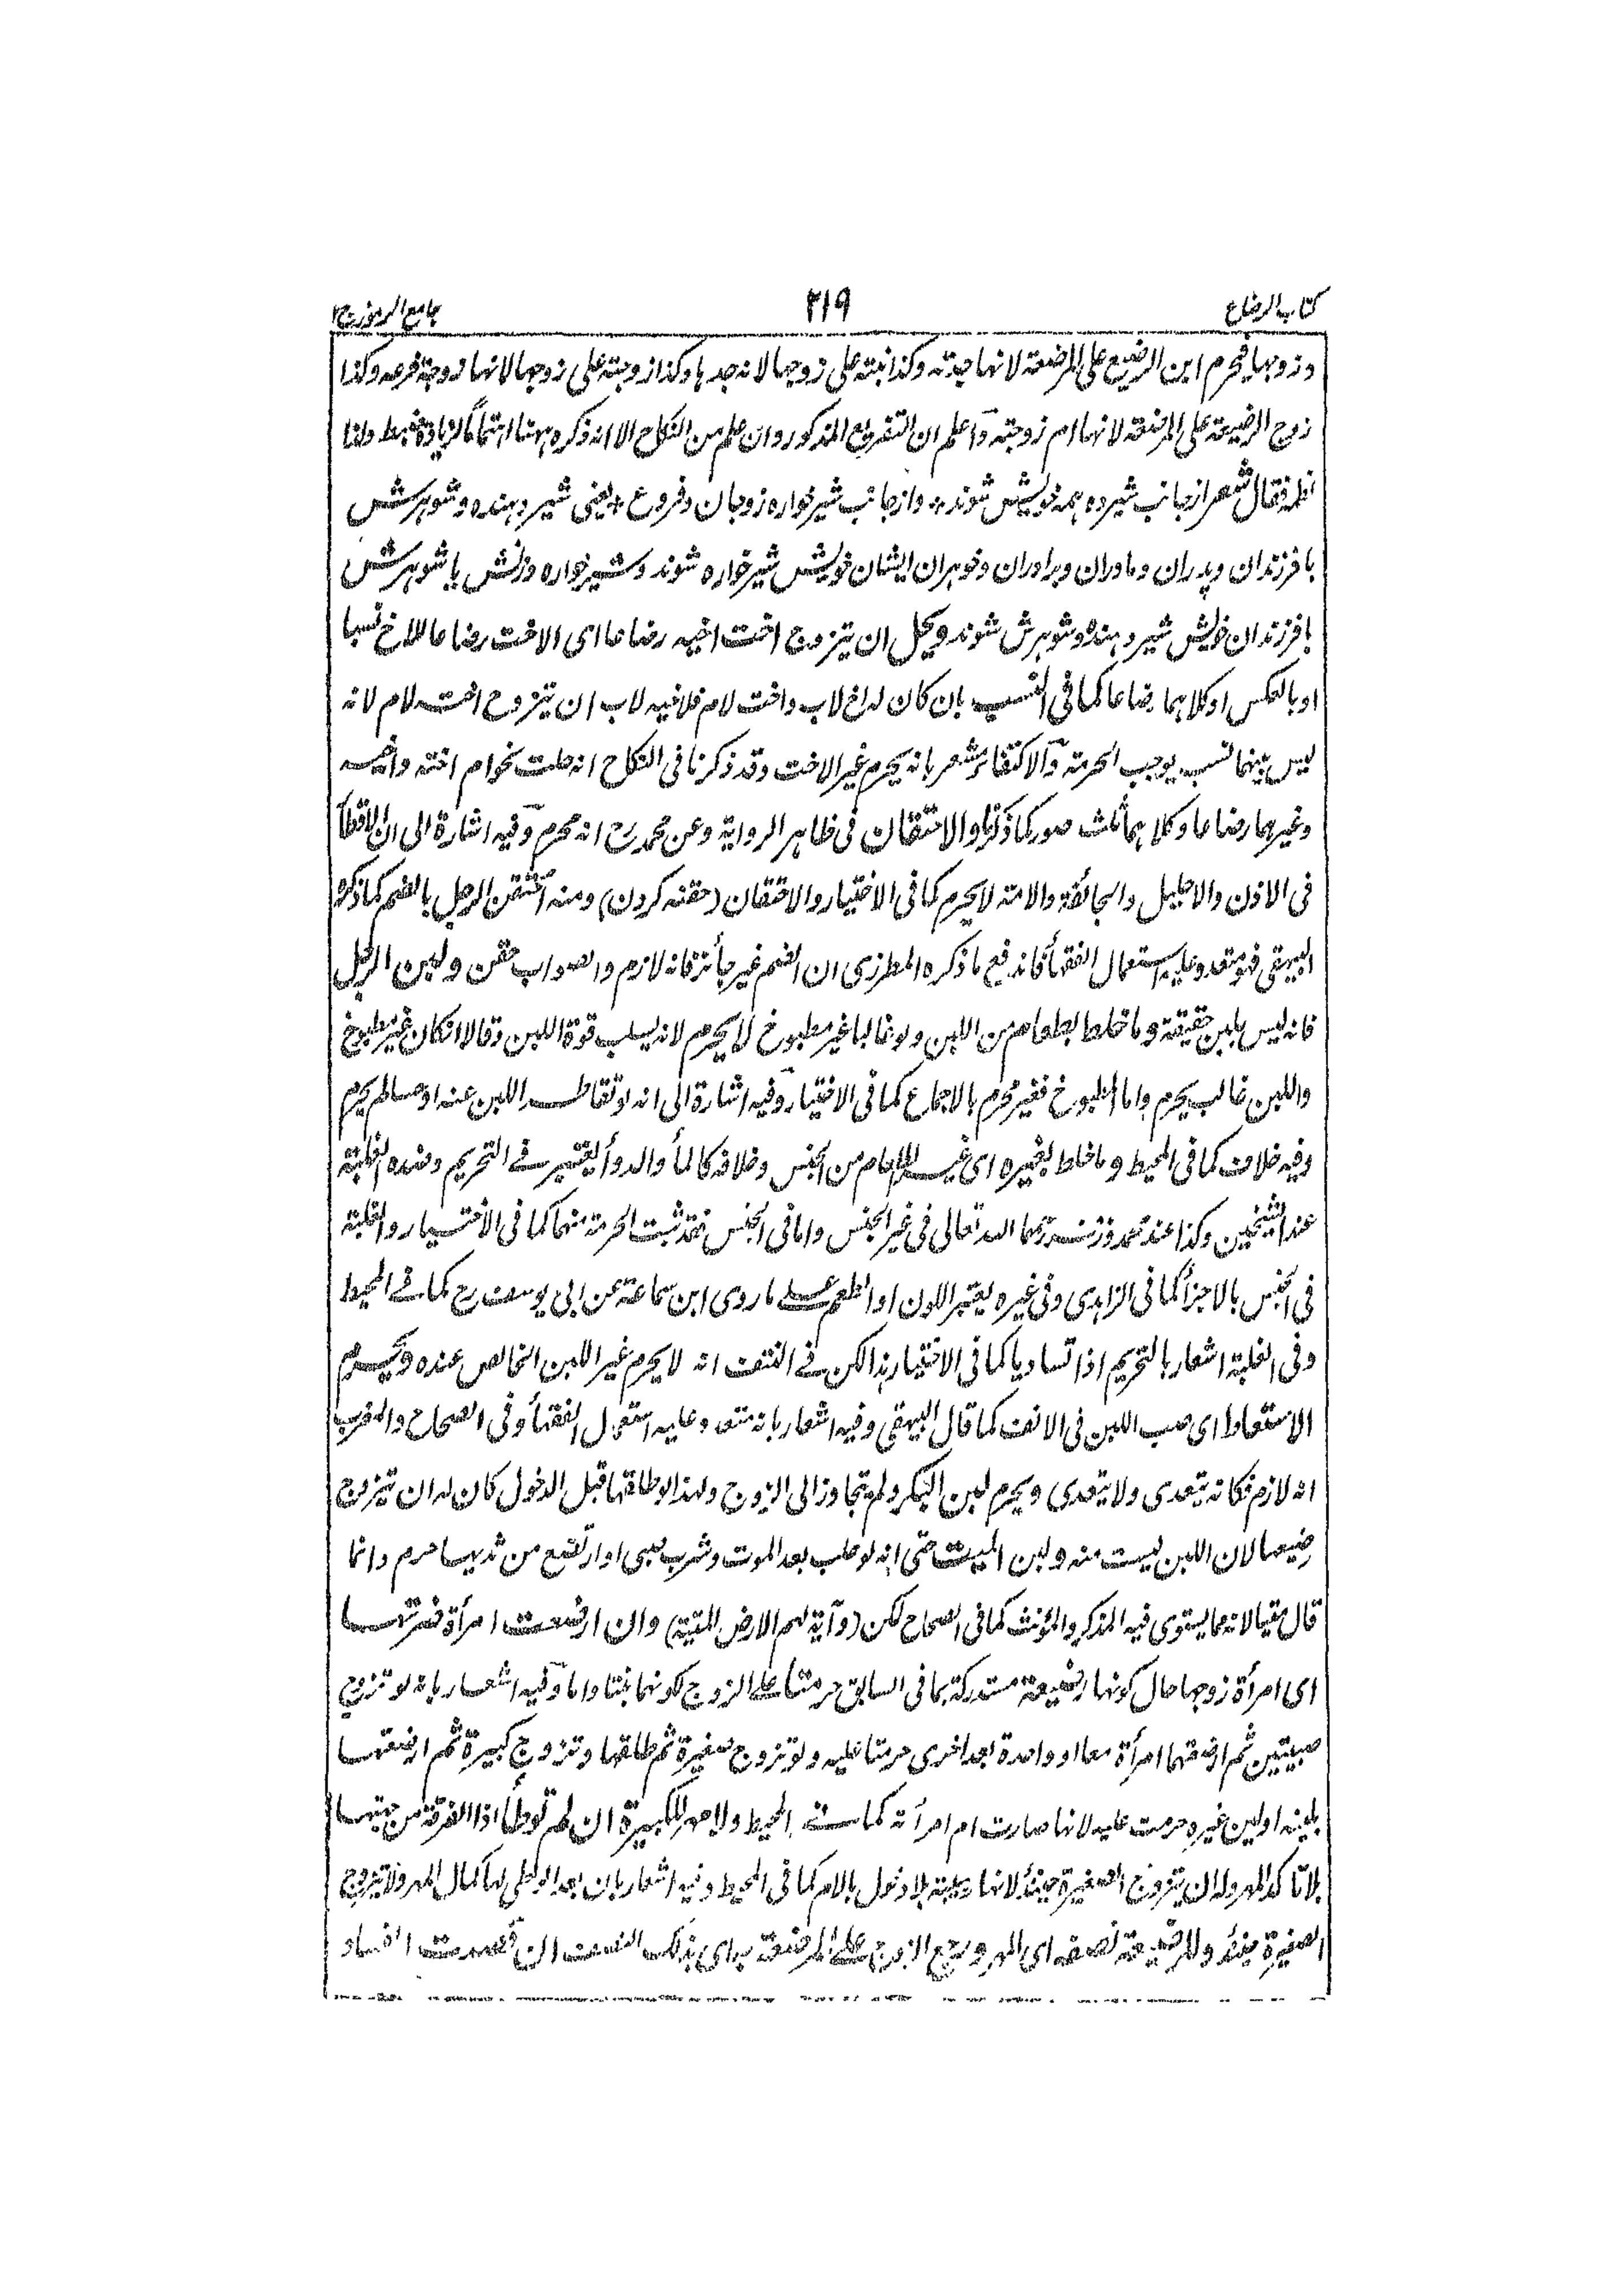 كتاب الرضاع
٣١٩
جامع الرموز ج٢
وزوجها فيحرم ابن الرضيع على المرضعة لانها جدته وكذا بنته على زوجها لانه جدها وكذا زوجته على زوجها لانها زوجة فرعه وكذا
زوج الرضيعة على المرضعة لانها ام زوجته واعلم ان التفريع المذكور وان علم من النكاح الا انه ذكره ههنا اهتماما لزيادة ضبط ولذا
نظمه فقال شعر از جانب شيرده همه خويش شوند + واز جانب شيرخواره زوجان وفروع + يعنى شير دهنده وشوهرش
با فرزندان وپدران ومادران وبرادران وخوهران ايشان خويش شيرخواره شوند وشيرخواره وزنش يا شوهرش
با فرزندان خويش شير دهنده وشوهرش شوند ويحل ان يتزوج اخت اخيه رضاعا اى الاخت رضاعا للاخ نسبا
او بالعكس او كلاهما رضاعا كما فى النسب بان كان له اخ لاب واخت لام فلاخيه لاب ان يتزوج اخت لام لانه
ليس بينهما نسب يوجب الحرمة والاكتفاء مشعر بانه يحرم غير الاخت وقد ذكرنا فى النكاح انه حلت نحو ام اخته واخيه
وغيرهما رضاعا وكلاهما ثلث صور كما ذكرنا والاحتقان فى ظاهر الرواية وعن محمد رح انه محرم وفيه اشارة الى ان الاقطار
فى الاذن والاحليل والجائفة والامة لا يحرم كما فى الاختيار والاحتقان (حقنه كردن) ومنه احتقن الرجل بالضم كما ذكره
البيهقى فهو متعد وعليه استعمال الفقهاء فاندفع ما ذكره المطرزى ان الضم غير جائز فانه لازم والصواب حقن ولبن الرجل
فانه ليس بلبن حقيقة وما خلط بطعام من اللبن ولو غالبا غير مطبوخ لا يحرم لانه يسلب قوة اللبن وقالا ان كان غير مطبوخ
واللبن غالب يحرم واما المطبوخ فغير محرم بالاجماع كما فى الاختيار وفيه اشارة الى انه لو تقاطر اللبن عنه او حسا لم يحرم
وفيه خلاف كما فى المحيط وما خلط بغيره اى غير الطعام من الجنس وخلافه كالماء والدواء يعتبر فى التحريم وضده الغلبة
عند الشيخين وكذا عند محمد وزفر رحهما الله تعالى فى غير الجنس واما فى الجنس فقد ثبت الحرمة منهما كما فى الاختيار والغلبة
فى الجنس بالاجزاء كما فى الزاهدى وفى غيره يعتبر اللون او الطعم على ما روى ابن سماعة عن ابى يوسف رح كما فى المحيط
وفى الغلبة اشعار بالتحريم اذا تساويا كما فى الاختيار هذا لكن فى النتف انه لا يحرم غير اللبن الخالص عنده ويحرم
الاستعاط اى صب اللبن فى الانف كما قال البيهقى وفيه اشعار بانه متعد وعليه استعمال الفقهاء وفى الصحاح والمغرب
انه لازم فكانه يتعدى ولا يتعدى ويحرم لبن البكر ولم يتجاوز الى الزوج ولهذا لو طلقها قبل الدخول كان له ان يتزوج
رضيعها لان اللبن ليست منه ولبن الميت حتى انه لو حلب بعد الموت وشرب صبى او ارتضع من ثديها حرم وانما
قال ميتا لانه مما يستوى فيه المذكر والمؤنث كما فى الصحاح لكن (وآية لهم الارض الميتة) وان ارضعت امرأة ضرتها
اى امرأة زوجها حال كونها رضيعة مستدركة بما فى السابق حرمتا على الزوج لكونهما بنتا واما وفيه اشعار بانه لو تزوج
صبيتين ثم ارضعتهما امرأة معا او واحدة بعد اخرى حرمتا عليه ولو تزوج صغيرة ثم طلقها وتزوج كبيرة ثم ارضعتها
بلبنه او لبن غيره حرمت عليه لانها صارت ام امرأته كما فى المحيط ولا مهر للكبيرة ان لم توطأ اذا الفرقة من جهتها
بلا تاكد المهر وله ان يتزوج الصغيرة حينئذ لانها ربيبة بلا دخول بالام كما فى المحيط وفيه اشعار بان بعد الوطى لها كمال المهر ولا يتزوج
الصغيرة حينئذ وللرضيعة نصفه اى المهر ويرجع الزوج على المرضعة به اى بذلك النصف ان قصدت الفساد